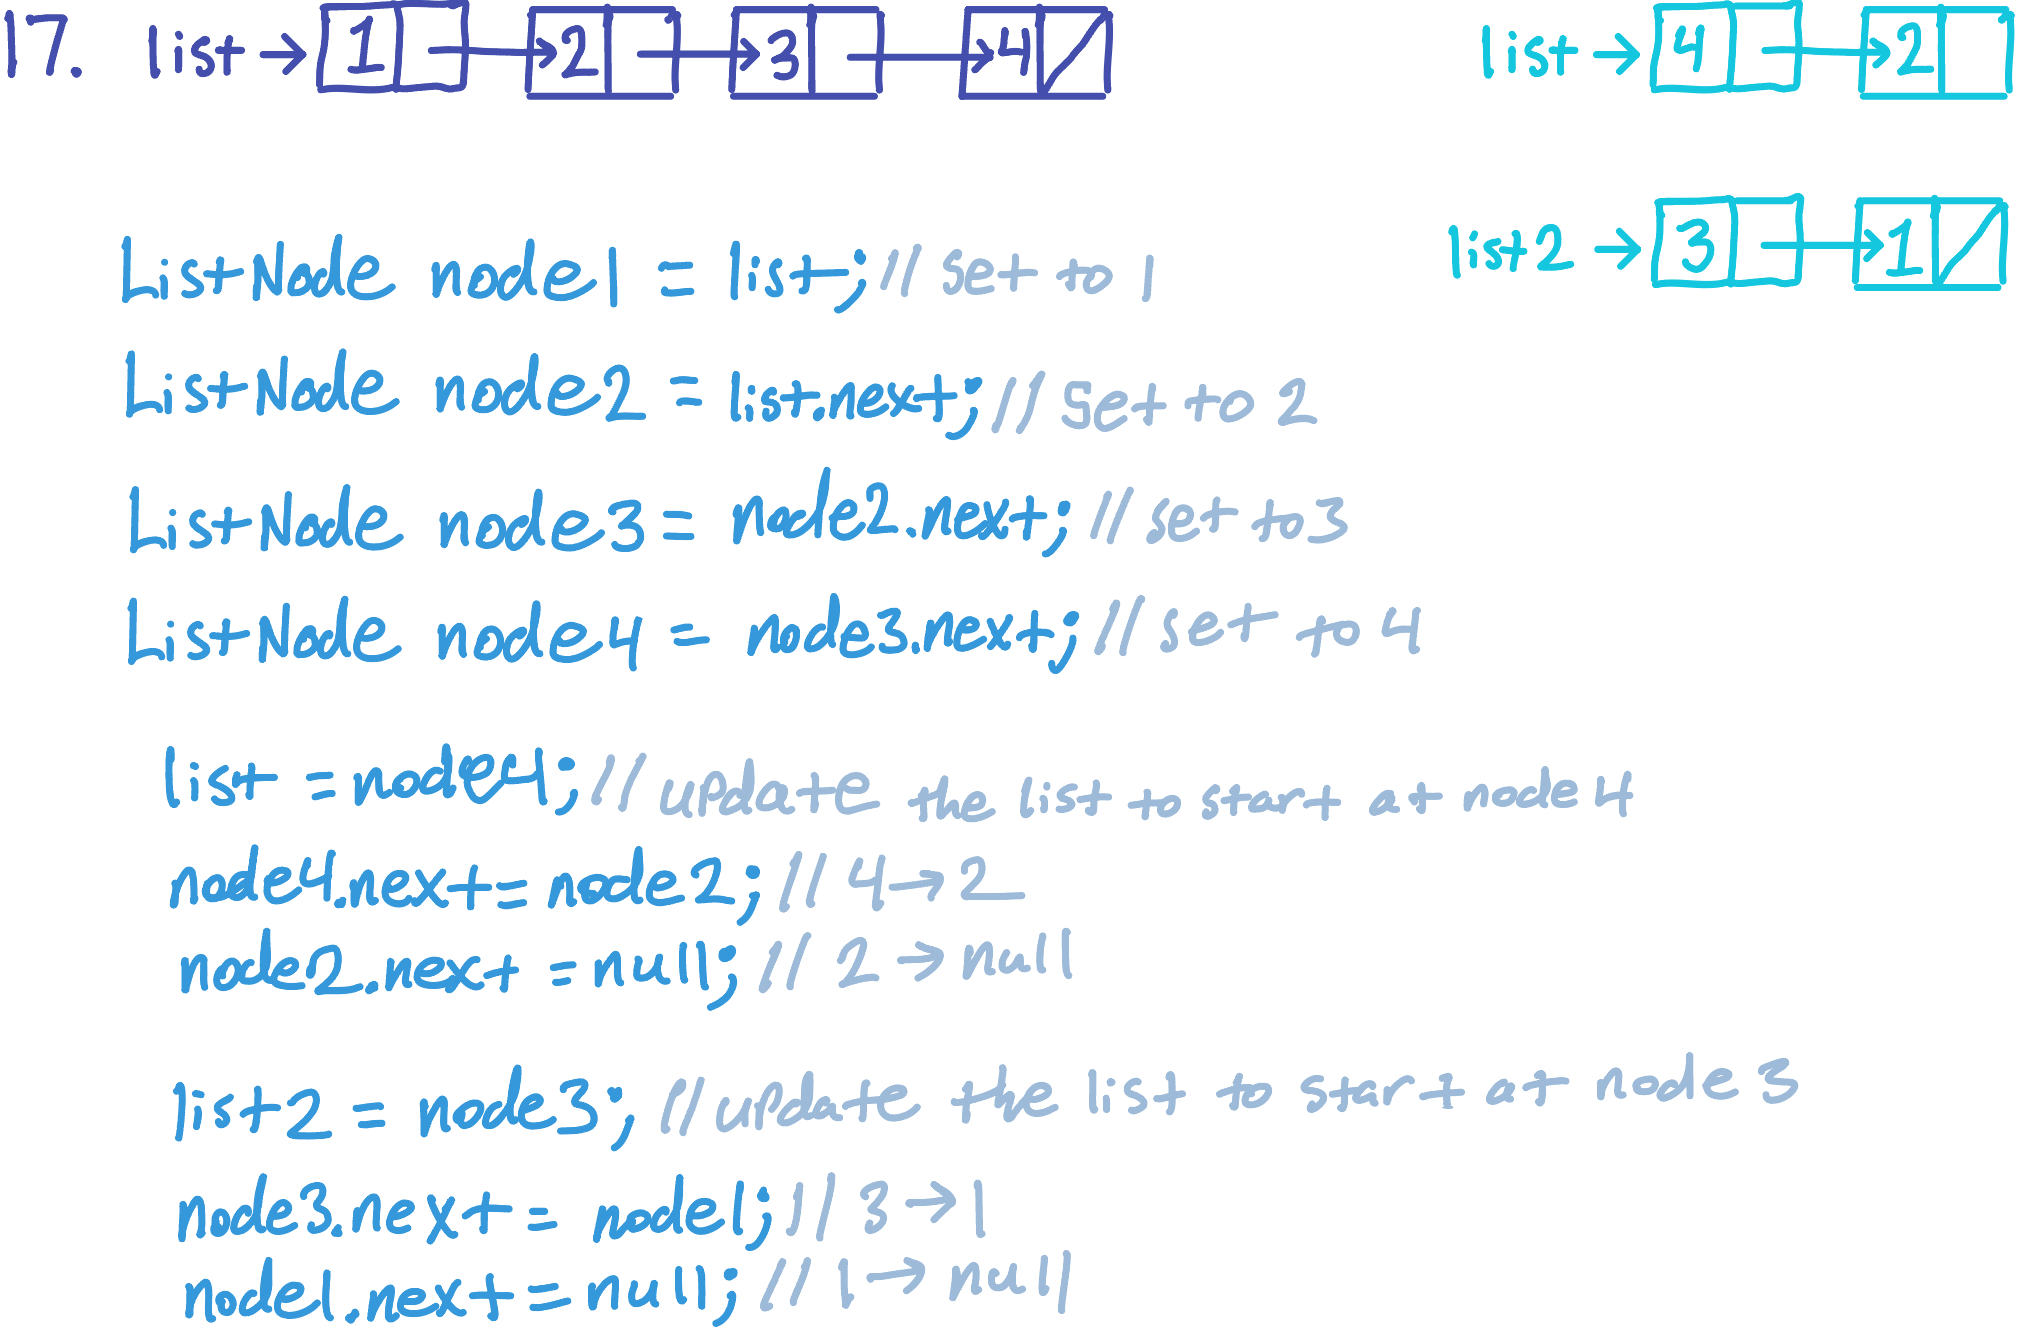 17. list → 1 → 2 → 3 → 4
list → 4 → 2
list2 → 3 → 1
ListNode node1 = list; // set to 1
ListNode node2 = list.next; // set to 2
ListNode node3 = node2.next; // set to 3
ListNode node4 = node3.next; // set to 4
list = node4; // update the list to start at node 4
node4.next = node2; // 4 → 2
node2.next = null; // 2 → null
list2 = node3; // update the list to start at node 3
node3.next = node1; // 3 → 1
node1.next = null; // 1 → null